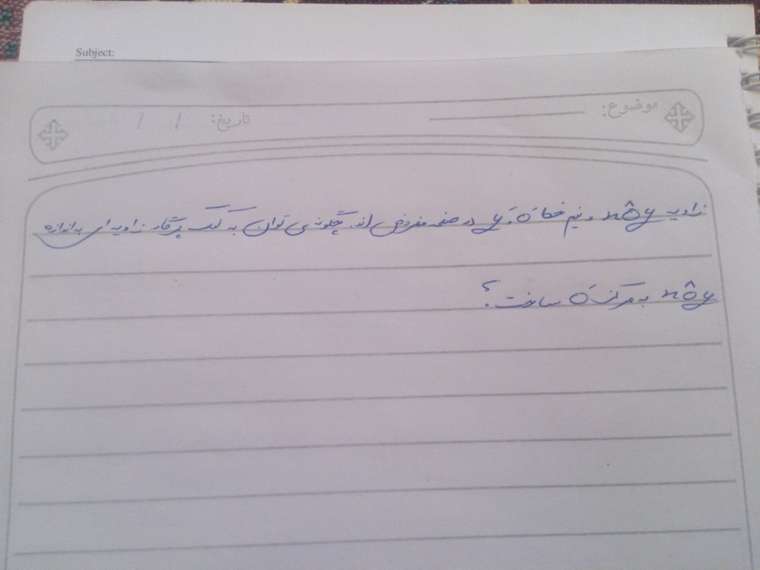 Subject:
موضوع: تاریخ: / /
زاویه xôy و نیم خط O´y´ در صفحه مفروض اند. چگونه می توان به کمک پرگار زاویه ای به اندازه
xôy به مرکز O´ ساخت؟